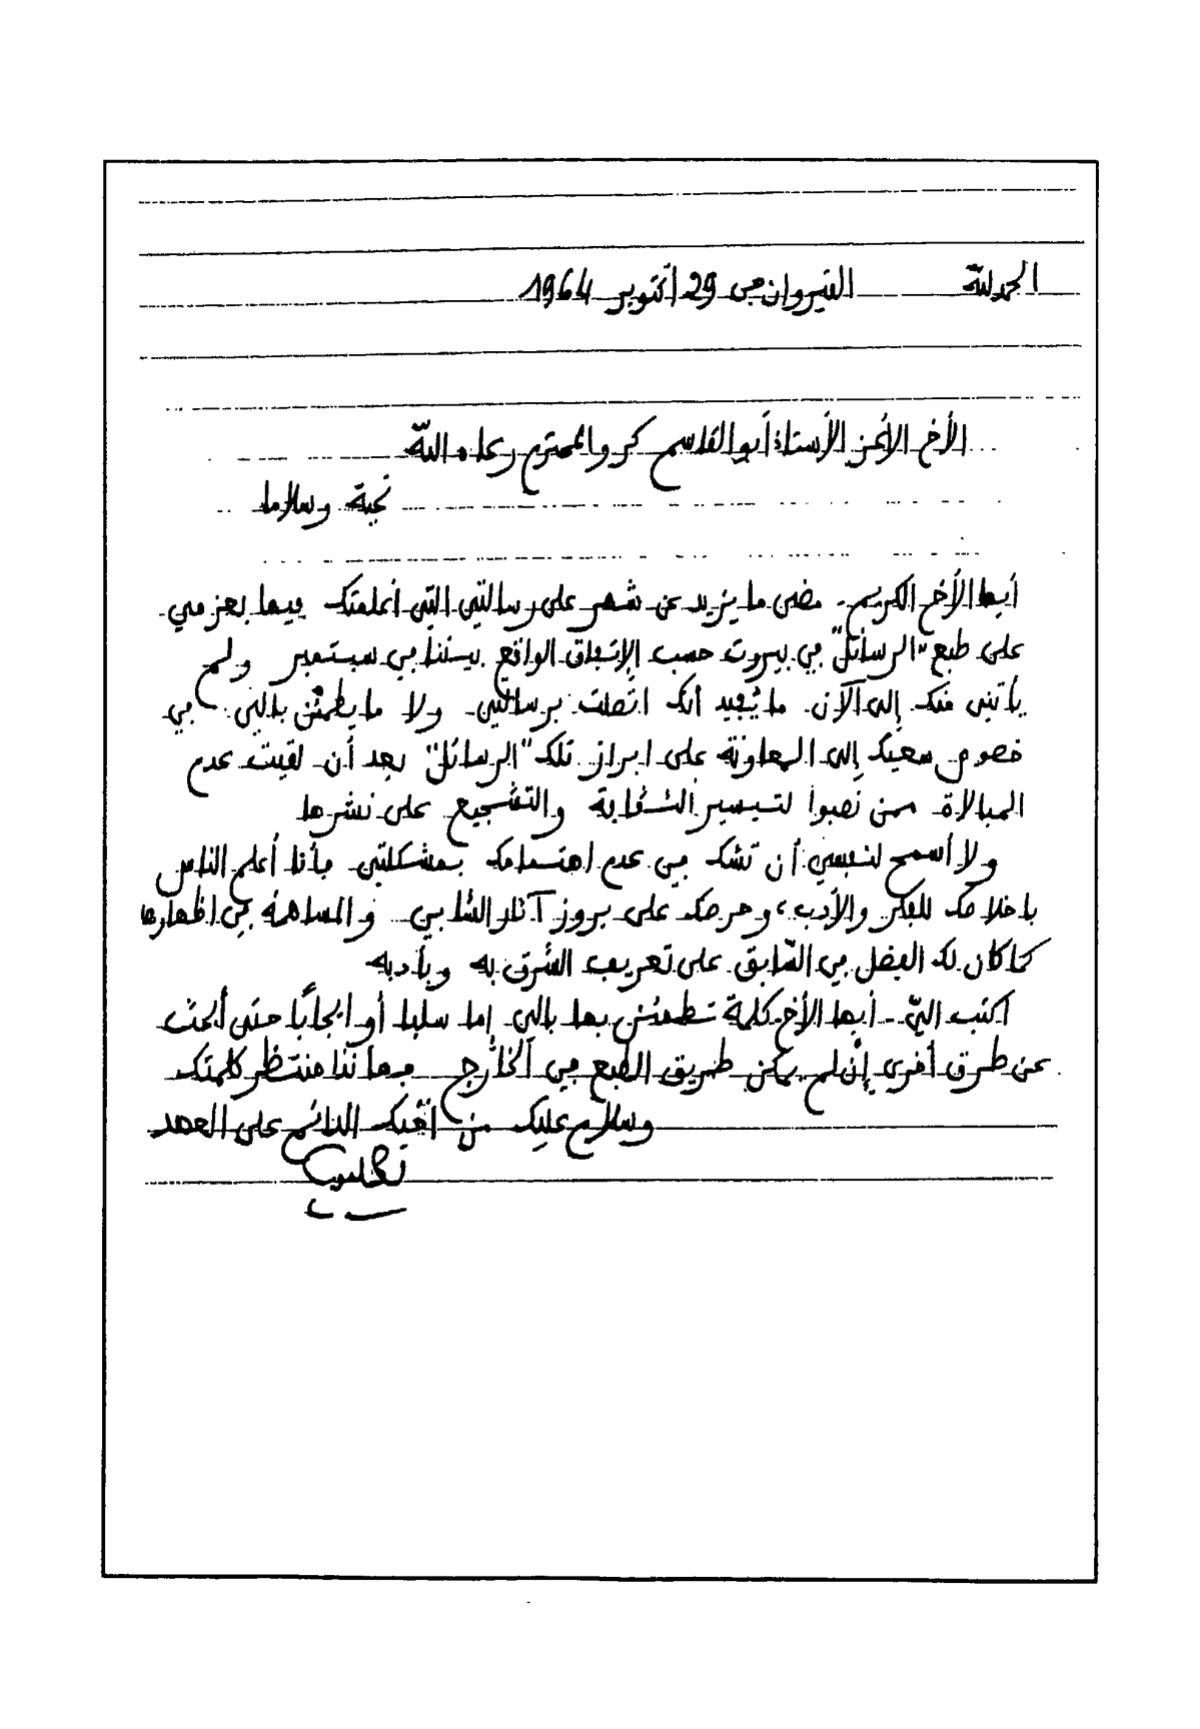 الحمد لله القيروان في 29 أكتوبر 1964
الأخ الأعز الأستاذ أبو القاسم كرو المحترم رعاه الله
تحية وسلاما
أيها الأخ الكريم. مضى ما يزيد عن شهر على رسالتي التي أعلمتك فيها بعزمي
على طبع "الرسائل" في بيروت حسب الإتفاق الواقع بيننا في سبتمبر ولم
يأتني منك إلى الآن. ما يُفيد أنك اتصلت برسالتي. ولا ما يطمئن بالي. في
خصوص سعيك إلى المعاونة على ابراز تلك "الرسائل" بعد أن لقيت عدم
المبالاة ممن نصبوا لتيسير الثقافة والتشجيع على نشرها
ولا أسمح لنفسي أن تشك في عدم اهتمامك بمشكلتي فأنا أعلم الناس
باخلاصك للفكر والأدب، وحرصك على بروز آثار الشابي. والمساهمة في اظهارها
كما كان لك الفضل في السّابق على تعريف الشرق به وبأدبه
اكتب اليّ.. أيها الأخ كلمة تطمئن بها بالي إما سلبا أو ايجابًا حتى أبحث
عن طرق أخرى إن لم يمكن طريق الطبع في الخارج فها أنا منتظر كلمتك
وسلام عليك من أخيك الدائم على العهد